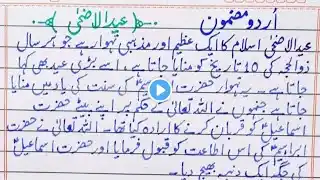 اُردو مضمون
عیدالاضحیٰ
عیدالاضحیٰ اسلام کا ایک عظیم اور مذہبی تہوار ہے جو ہر سال
ذوالحجہ کی 10 تاریخ کو منایا جاتا ہے۔ اسے بڑی عید بھی کہا
جاتا ہے۔ یہ تہوار حضرت کی سنت کی یاد میں منایا
جاتا ہے جنہوں نے اللہ تعالیٰ کے حکم پر اپنے بیٹے حضرت
اسماعیلؑ کو قربان کرنے کا ارادہ کیا تھا۔ اللہ تعالیٰ نے حضرت
ابراہیمؑ کی اس اطاعت کو قبول فرمایا اور حضرت اسماعیلؑ
کی جگہ ایک دنبہ بھیج دیا۔